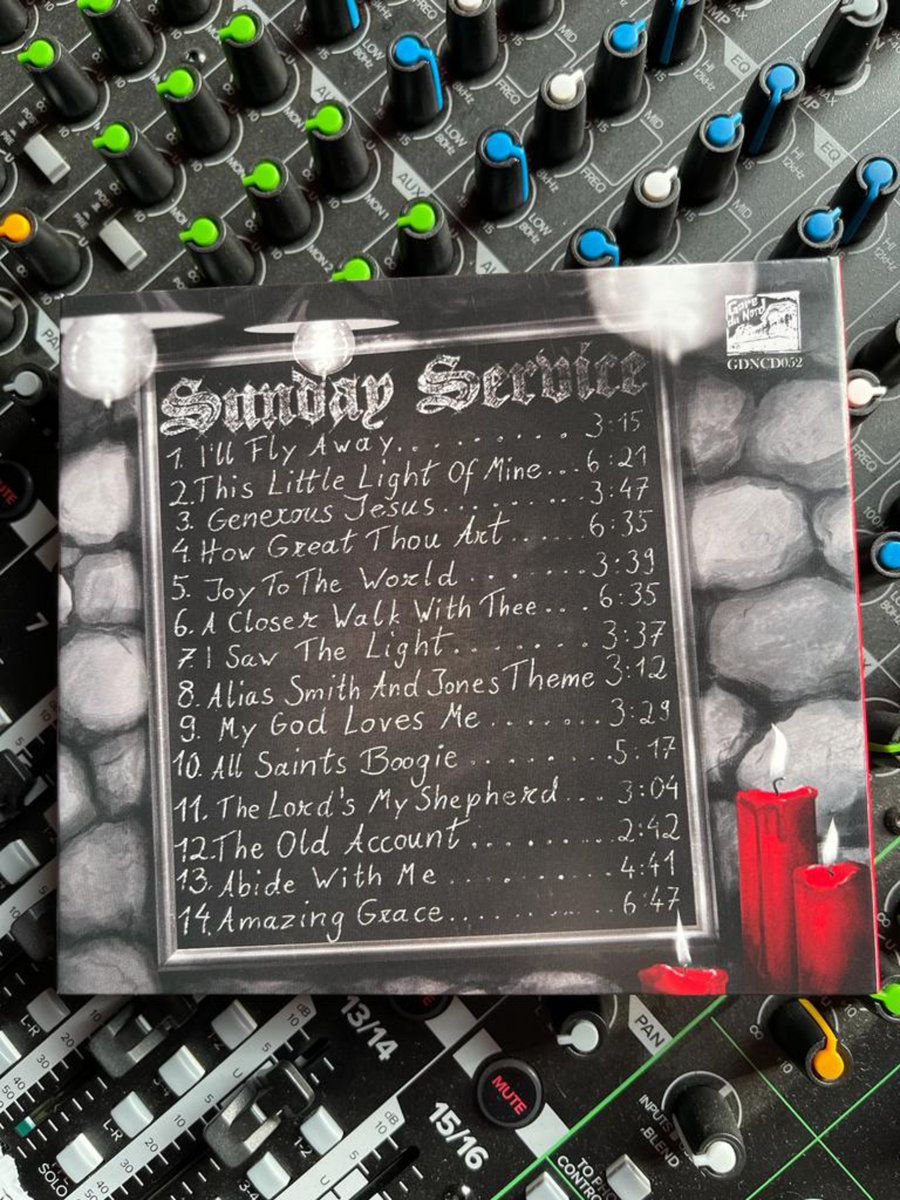 Gare du Nord
GDNCD052
Sunday Service
1. I'll Fly Away.......... 3:15
2. This Little Light Of Mine... 6:21
3. Generous Jesus.......... 3:47
4. How Great Thou Art...... 6:35
5. Joy To The World........ 3:39
6. A Closer Walk With Thee... 6:35
7. I Saw The Light........ 3:37
8. Alias Smith And Jones Theme 3:12
9. My God Loves Me....... 3:29
10. All Saints Boogie........ 5:17
11. The Lord's My Shepherd... 3:04
12. The Old Account.......... 2:42
13. Abide With Me.......... 4:41
14. Amazing Grace.......... 6:47
13/14
15/16
MUTE
PAN
INPUTS
BLEND
SOLO
L-R
L-R
1-2
3-4
dB
dB
AUX
EQ
EQ
FREQ
FREQ
MID
MID
LOW
80Hz
LOW
80Hz
HI
12kHz
MON 1
MON 2